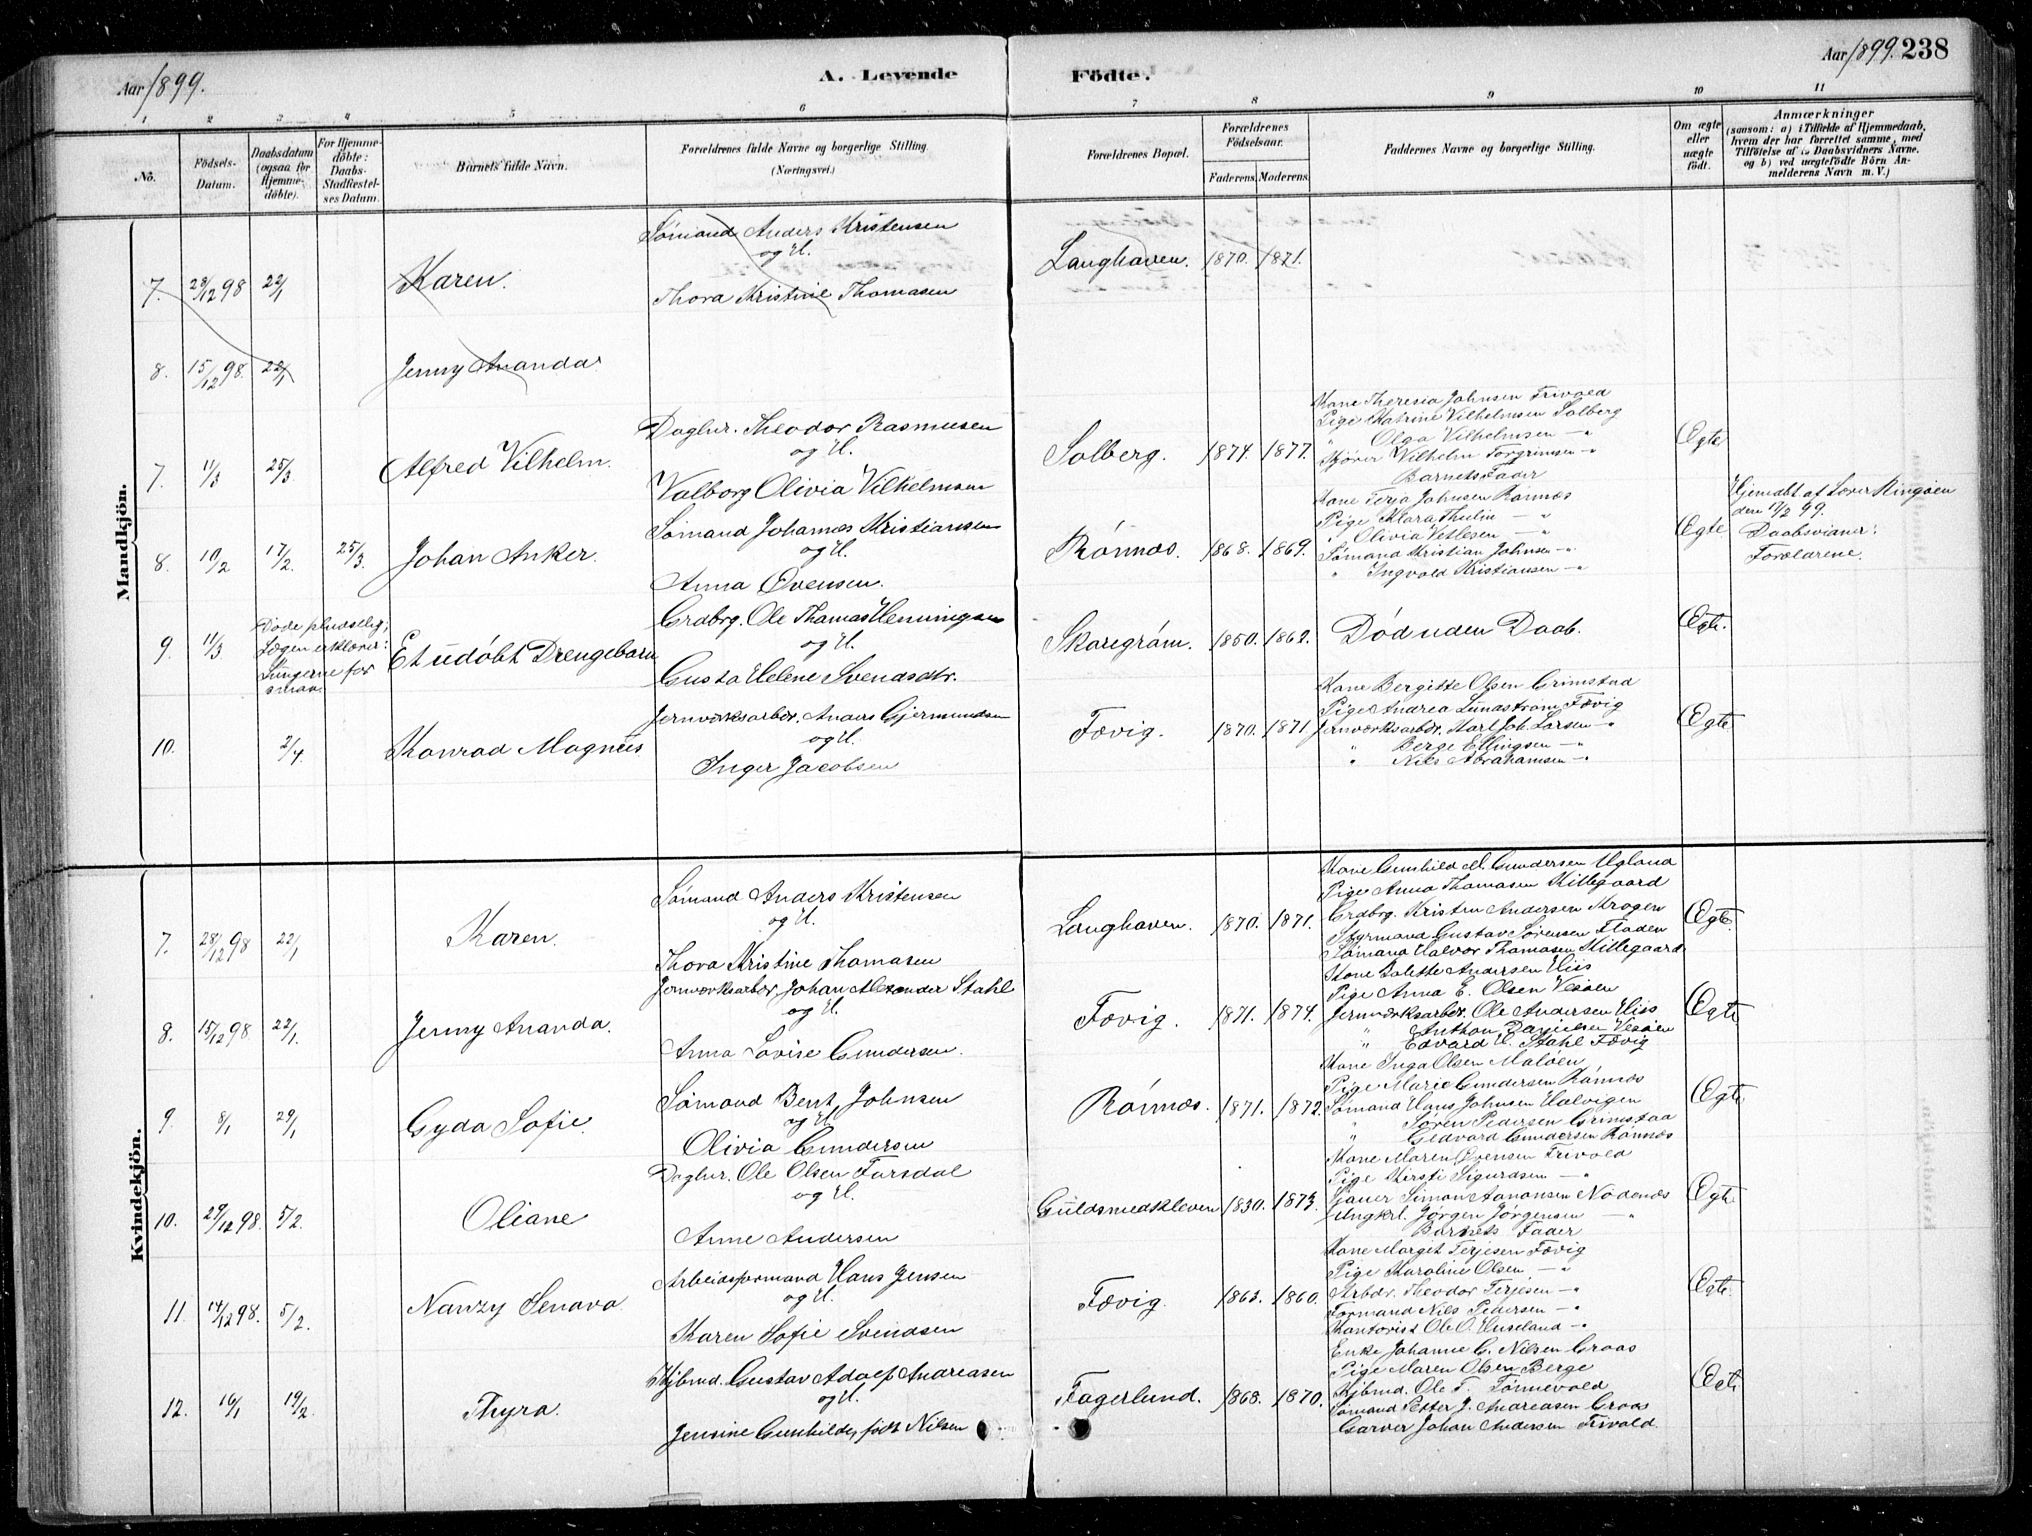 Aar 1899.
A. Levende Födte.
Aar 1899. 238
1 2 3 4 5 6 7 8 9 10 11
No.
Födsels-
Datum.
Daabsdatum
(ogsaa for
Hjemme-
döbte).
For Hjemme-
döbte:
Daabs-
Stadfæstel-
ses Datum.
Barnets fulde Navn.
Forældrenes fulde Navne og borgerlige Stilling
(Næringsvei.)
Forældrenes Bopæl.
Forældrenes
Födselsaar.
Faderens. Moderens.
Faddernes Navne og borgerlige Stilling.
Om ægte
eller
uægte
födt.
Anmærkninger
(saasom: a) i Tilfælde af Hjemmedaab,
hvem der har forrettet samme, med
Tilföielse af to Daabsvidners Navne,
og b) ved uægtefödte Börn An-
melderens Navn m. V.)
Mandkjön.
7. 28/12 98 22/1 Karen.
Sömand Anders Kristensen
og H.
Thora Kristine Thomasen
Langhaven. 1870. 1871.
8. 15/12 98. 22/1 Jenny Ananda
7. 11/3 25/3 Alfred Vilhelm.
Dagbr. Theodor Rasmusen
og H.
Valborg Olivia Vilhelmsen
Solberg. 1874. 1877.
Kone Theresia Johnsen Frivold
Pige Katrine Vilhelmsen Solberg
" Olga Vilhelmsen -"-
Kjörer Vilhelm Torgrimsen -"-
Barnets Fader
Ægte
8. 10/2 17/2. 25/3. Johan Anker.
Sömand Johannes Kristiansen
og H.
Anna Ovensen.
Rönnæs. 1868. 1869.
Kone Terja Johnsen Rönnæs
Pige Klara Thulin -"-
" Olivia Vetlesen -"-
Sömand Kristian Johnsen -"-
" Ingvald Kristiansen -"-
Ægte
Hjemdbt af Lærer Ringöen
den 17/2 99.
Daabsvidner:
Forældrene.
9. 11/3
Döde pludselig;
Lægen erklærer:
Lungerne for
smaa.
Et udöbt Drengebarn
Grdbrg. Ole Thomas Henningsen
og H.
Gusta Helene Svendsdtr.
Skaregröm. 1850. 1862.
Död uden Daab.
Ægte.
10. 2/4 Konrad Magnus
Jernverksarbdr. Anders Gjermundsen
og H.
Inger Jacobsen
Fævig. 1870. 1871.
Kone Bergitte Olsen Grimstad
Pige Andrea Lundström Fævig
Jernværksarbdr. Karl Joh. Larsen -"-
" Berge Ellingsen -"-
" Nils Abrahamsen -"-
Ægte
Kvindekjön.
7. 28/12 98 22/1 Karen.
Sömand Anders Kristensen
og H.
Thora Kristine Thomasen
Langhaven. 1870. 1871.
Kone Gunhild M. Gundersen Ugland
Pige Anna Thomasen Killegaard
Grdbrg. Kristen Andersen Krogen
Styrmand Gustav Sörensen Fladen
Sömand Halvor Thomasen Killegaard
Ægte.
8. 15/12 98 22/1. Jenny Ananda.
Jernværksarbdr. Johan Alexander Stahl
og H.
Anna Lovise Gundersen.
Fævig. 1871. 1874.
Kone Galette Andersen Hiis
Pige Anna E. Olsen Vesöen
Jernværksarbdr. Ole Andersen Hiis
" Anthon Danielsen Vesöen
" Edvard H. Stahl Fævig
Ægte
9. 8/1 29/1 Gyda Sofie.
Sömand Bent Johnsen
og H.
Olivia Gundersen
Rönnæs. 1871. 1872.
Kone Inga Olsen Malöen
Pige Marie Gundersen Rönnæs
Sömand Hans Johnsen Halvigen
" Sören Pedersen Grimstad
" Gedvard Gundersen Rönnæs
Ægte
10. 29/12 98. 5/2. Oliane
Dagbr. Ole Olsen Farsdal
og H.
Anne Andersen
Guldsmedkleven 1830. 1873.
Kone Maren Evensen Frivold
Pige Kirsti Sigurdsen -"-
Gaver Simon Aanonsen Nodenæs
Ungkrl. Jörgen Jörgensen -"-
Barnets Fader
Ægte
11. 14/12 98. 5/2. Nanzy Senora
Arbeidsformand Hans Jensen
og H.
Karen Sofie Svendsen
Fævig. 1863. 1860.
Kone Margit Terjesen Fævig
Pige Karoline Olsen -"-
Arbdr. Theodor Terjesen -"-
Formand Nils Pedersen -"-
Kontorist Ole O. Huseland -"-
Ægte.
12. 16/1 19/2. Thyra.
Kjbmd. Gustav Adolf Andreasen
og H.
Jensine Gunhilde, födt Nilsen
Fagerlund. 1868. 1870.
Enke Johanne G. Nilsen Groos
Pige Maren Olsen Berge
Kjbmd. Ole T. Tönnevold
Sömand Petter J. Andreasen Groos
Garver Johan Andersen Frivold.
Ægte